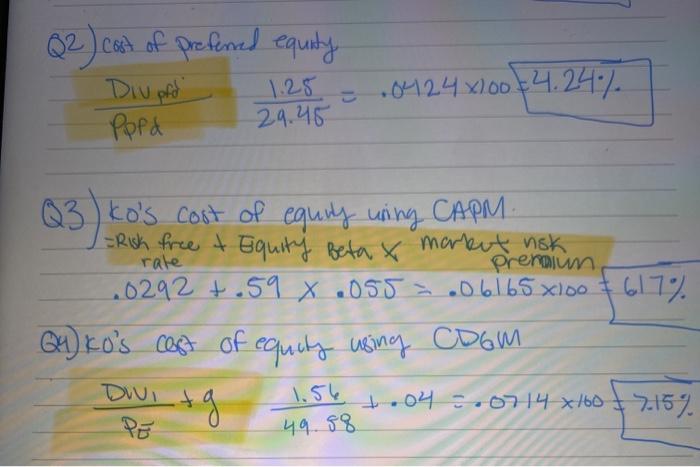 Q2) cost of preferred equity
Div pfd 1.25 = .0424 x100 = 4.24%
Ppfd 29.45
Q3) KO's cost of equity using CAPM.
= Risk free + Equity Beta x market risk
rate premium
.0292 + .59 x .055 = .06165 x100 = 617%
Q4) KO's cost of equity using CDGM
DIV1 + g 1.56 + .04 = .0714 x 100 = 7.15%
PE 49.58